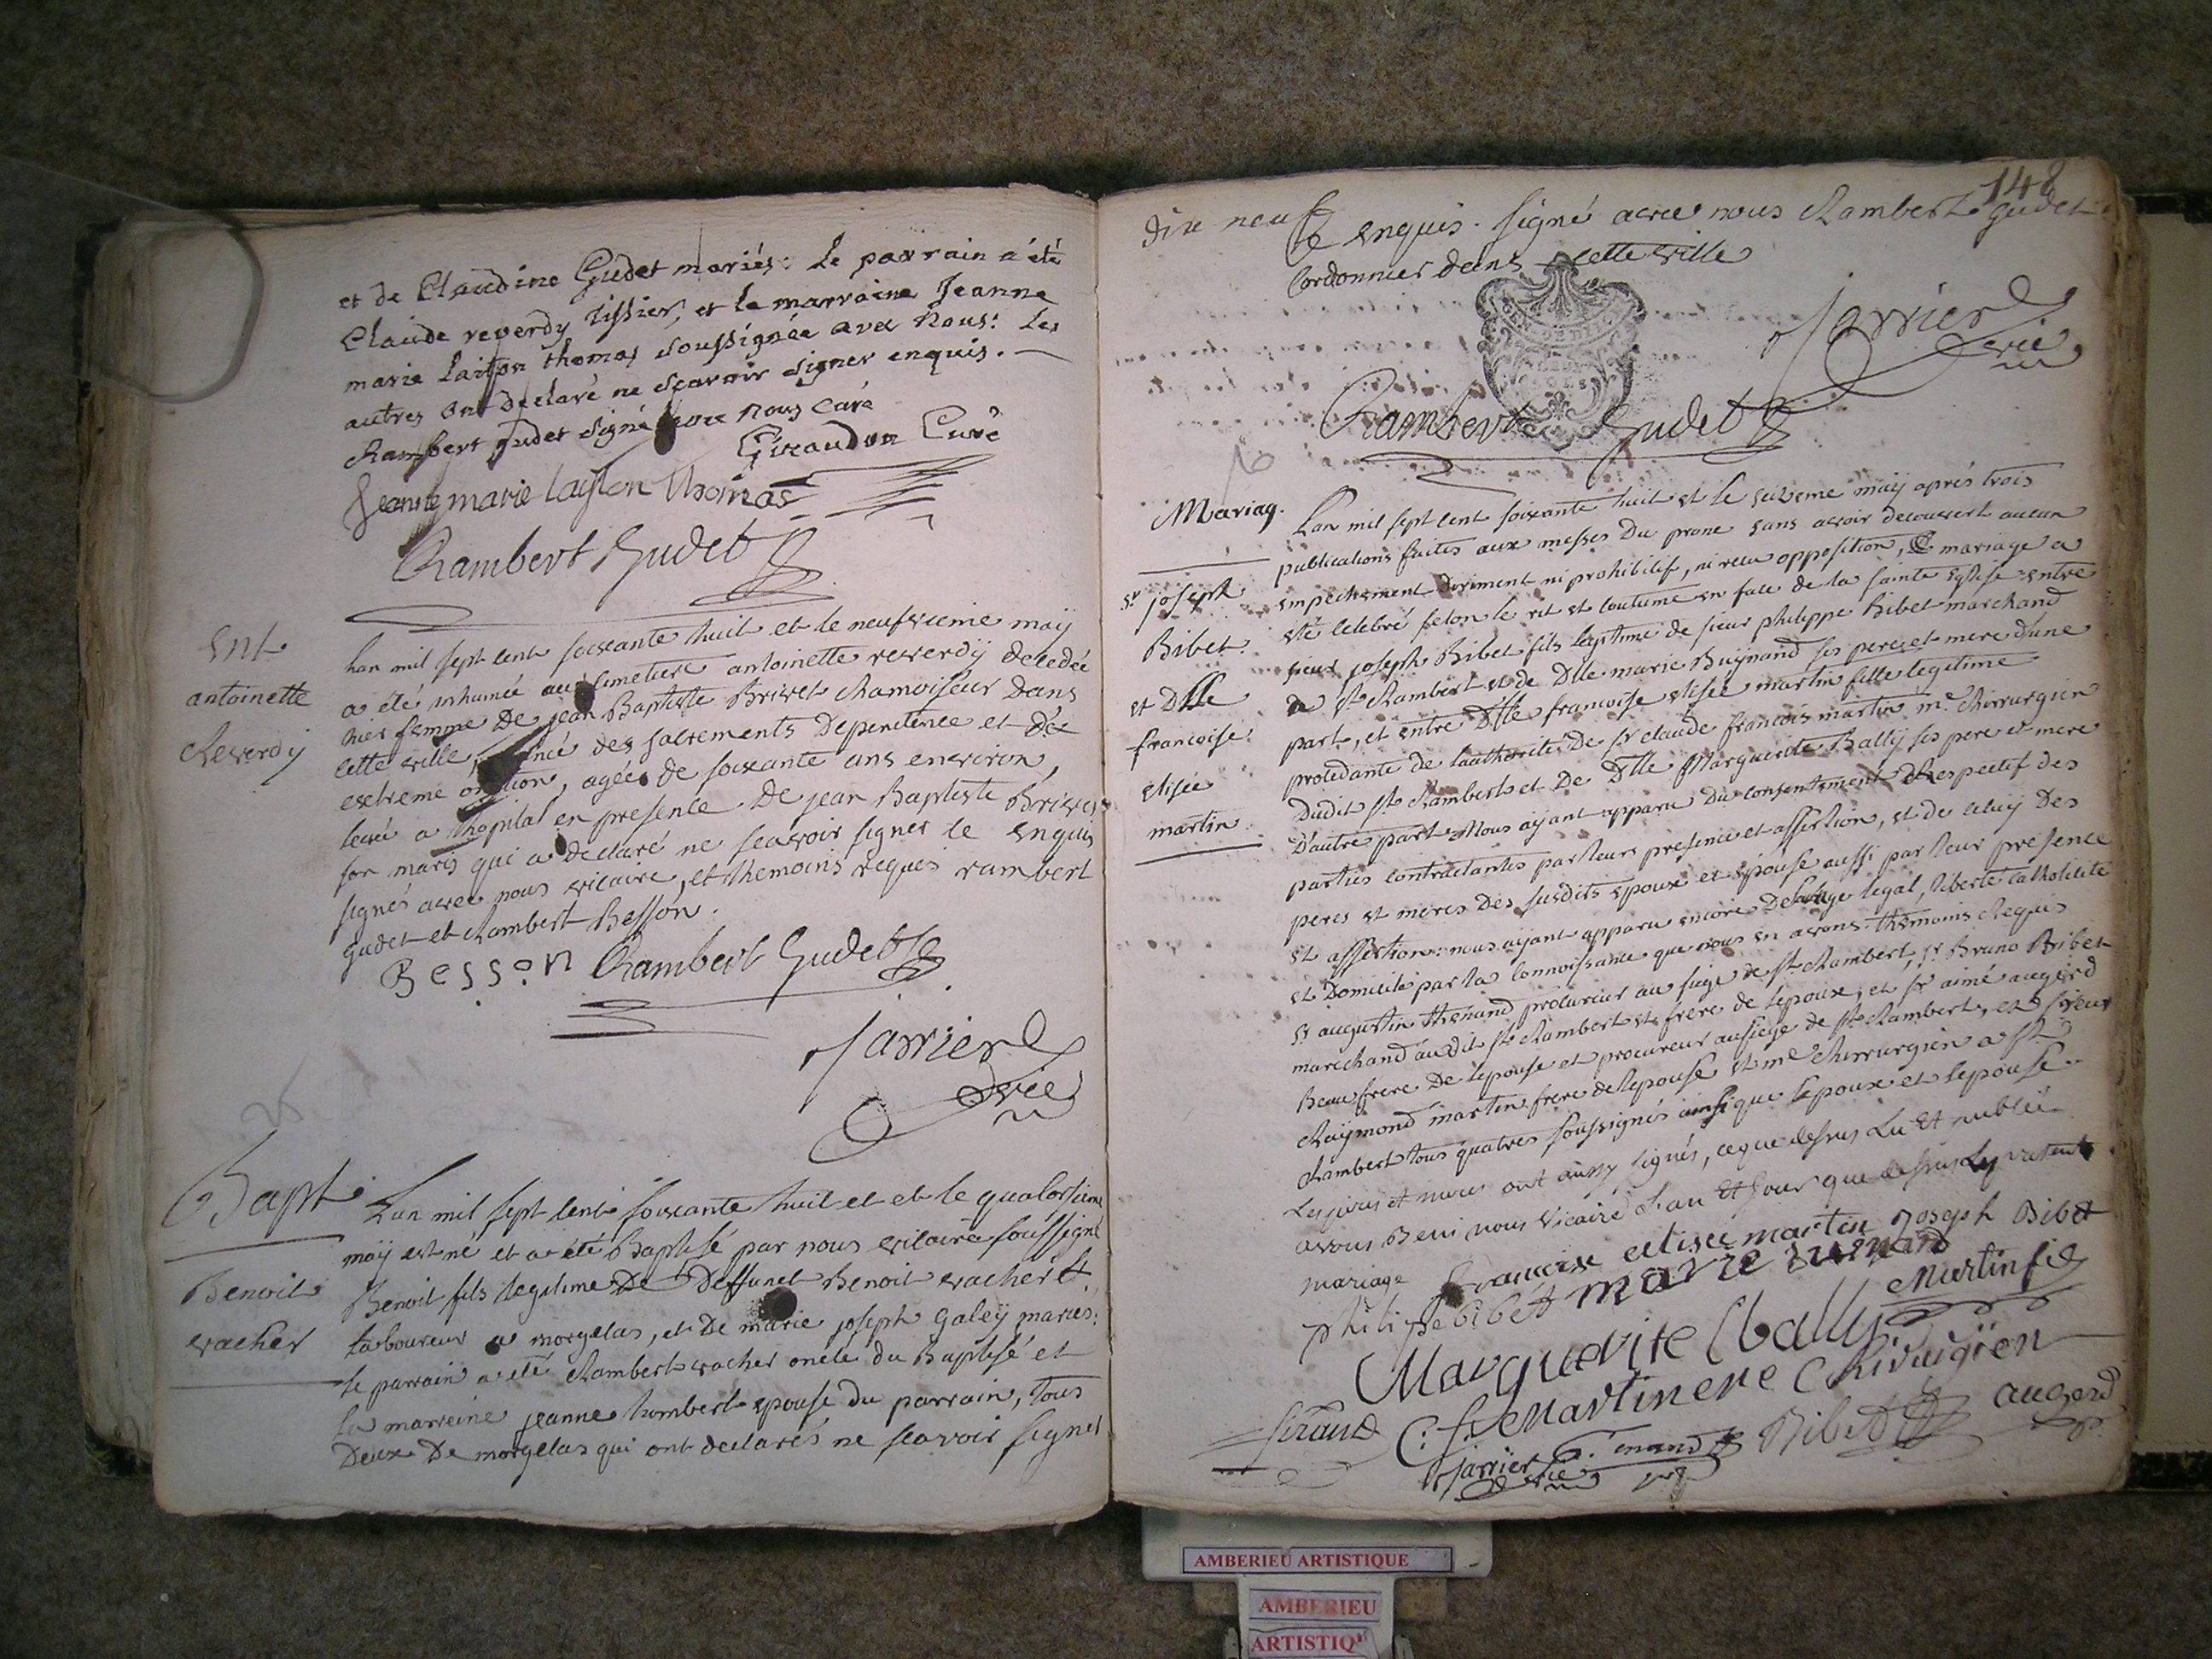 et de Claudine Gudet mariés: le parrain a été
Claude reverdy tissier, et la marraine Jeanne
marie laison thomas soussignée avec Nous: les
autres ont declaré ne scavoir signer enquis.
Rambert gudet signé avec nous Curé
Giraudon Curé
Jeanne marie laison thomas
Rambert Gudet
Ent
antoinette
Reverdy
Lan mil sept cent soixante huit et le neufvieme may
a été inhumée au cimetiere antoinette reverdÿ decedée
hier femme De jean Baptiste Brivet chamoiseur Dans
cette ville, des sacrements De penitence et De
extreme onction, agée de soixante ans environ,
a lhopital en presence De jean Baptiste Brivet
son maris qui a declaré ne scavoir signer le enquis
signés avec nous vicaire, et themoins requis rambert
gudet et Rambert Besson.
Besson Rambert Gudet
Jarrier
vic
Bapt
Benoit
vacher
Lan mil sept cent soixante huit et et le quatorsieme
maÿ est né et a été Baptisé par nous vicaire soussigné
Benoit fils legitime De Deffunct Benoit vacher
laboureur a morgelas, et De marie joseph Galeÿ mariés:
le parrain a été Rambert vacher oncle du Baptisé et
la marreine jeanne humbert epouse du parrain, tous
Deux De morgelas qui ont declarés ne scavoir signer
148
Dixe neuf
le enquis. signé avec nous Rambert gudet
Cordonnier dans cette ville
Jarrier
vic
Rambert Gudet
Mariag.
sr joseph
Bibet
et Dlle
francoise
elisée
martin
Lan mil sept cent soixante huit et le seizieme maÿ aprés trois
publications faites aux messes Du prone sans avoir decouvert aucun
empechement diriment ni prohibitif, ni recu opposition, le mariage a
eté celebré selon le rit et coutume en face de la sainte Eglise entre
sieur joseph Bibet fils legitime de sieur philippe Bibet marchand
a St Rambert et de Dlle marie Buÿnand ses pere et mere dune
part, et entre Dlle francoise elisée martin fille legitime
procedante de lauthorité De sr claude francois martin me chirurgien
Dudit St Rambert et De Dlle Marguerite Ballÿ ses pere et mere
D'autre part Nous aÿant apparu Du consentement Respectif des
parties contractantes par leurs presence et assertion, et de celuÿ Des
peres et meres Des susdits epoux et epouse aussi par leur presence
et assertion: nous aÿant apparu encore De lage legal, liberté catholicité
et Domicile par la connoissance que nous en avons. themoins Requis
sr augustin thenand procureur au siege de St Rambert, sr Bruno Bibet
marchand audit St Rambert et frere de lepoux, et sr aimé augerd
Beaufrere De lepouse et procureur au siege de St Rambert, et sieur
Raÿmond martin frere de lepouse et me chirurgien a St
Rambert tous quatres soussignés ainsi que lepoux et lepouse.
Les peres et meres ont aussy signés, ce que dessus Lu et publié
avons Beni nous Vicaire L'an Et Jour que dessus le present
mariage francoise elisée martin Joseph Bibet
philipe bibet marie buinand
Martin fis
Marguerite Bally
C. f. Martin me Chirurgien
Sirand
Jarrier vic
Bibet
augerd
AMBERIEU ARTISTIQUE
AMBERIEU
ARTISTIQ